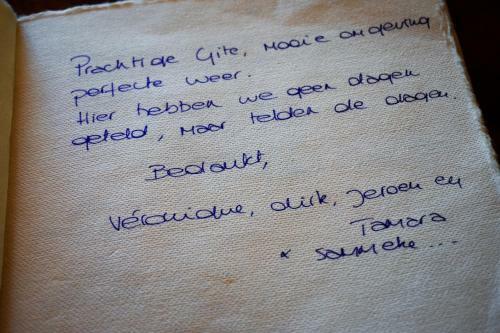 Prachtige Gite, Mooie omgeving
perfecte weer.
Hier hebben we geen dagen
geteld, maar telden de dagen.
Bedankt,
Véronique, Dirk, Jeroen en
Tamara
x Sammeke...